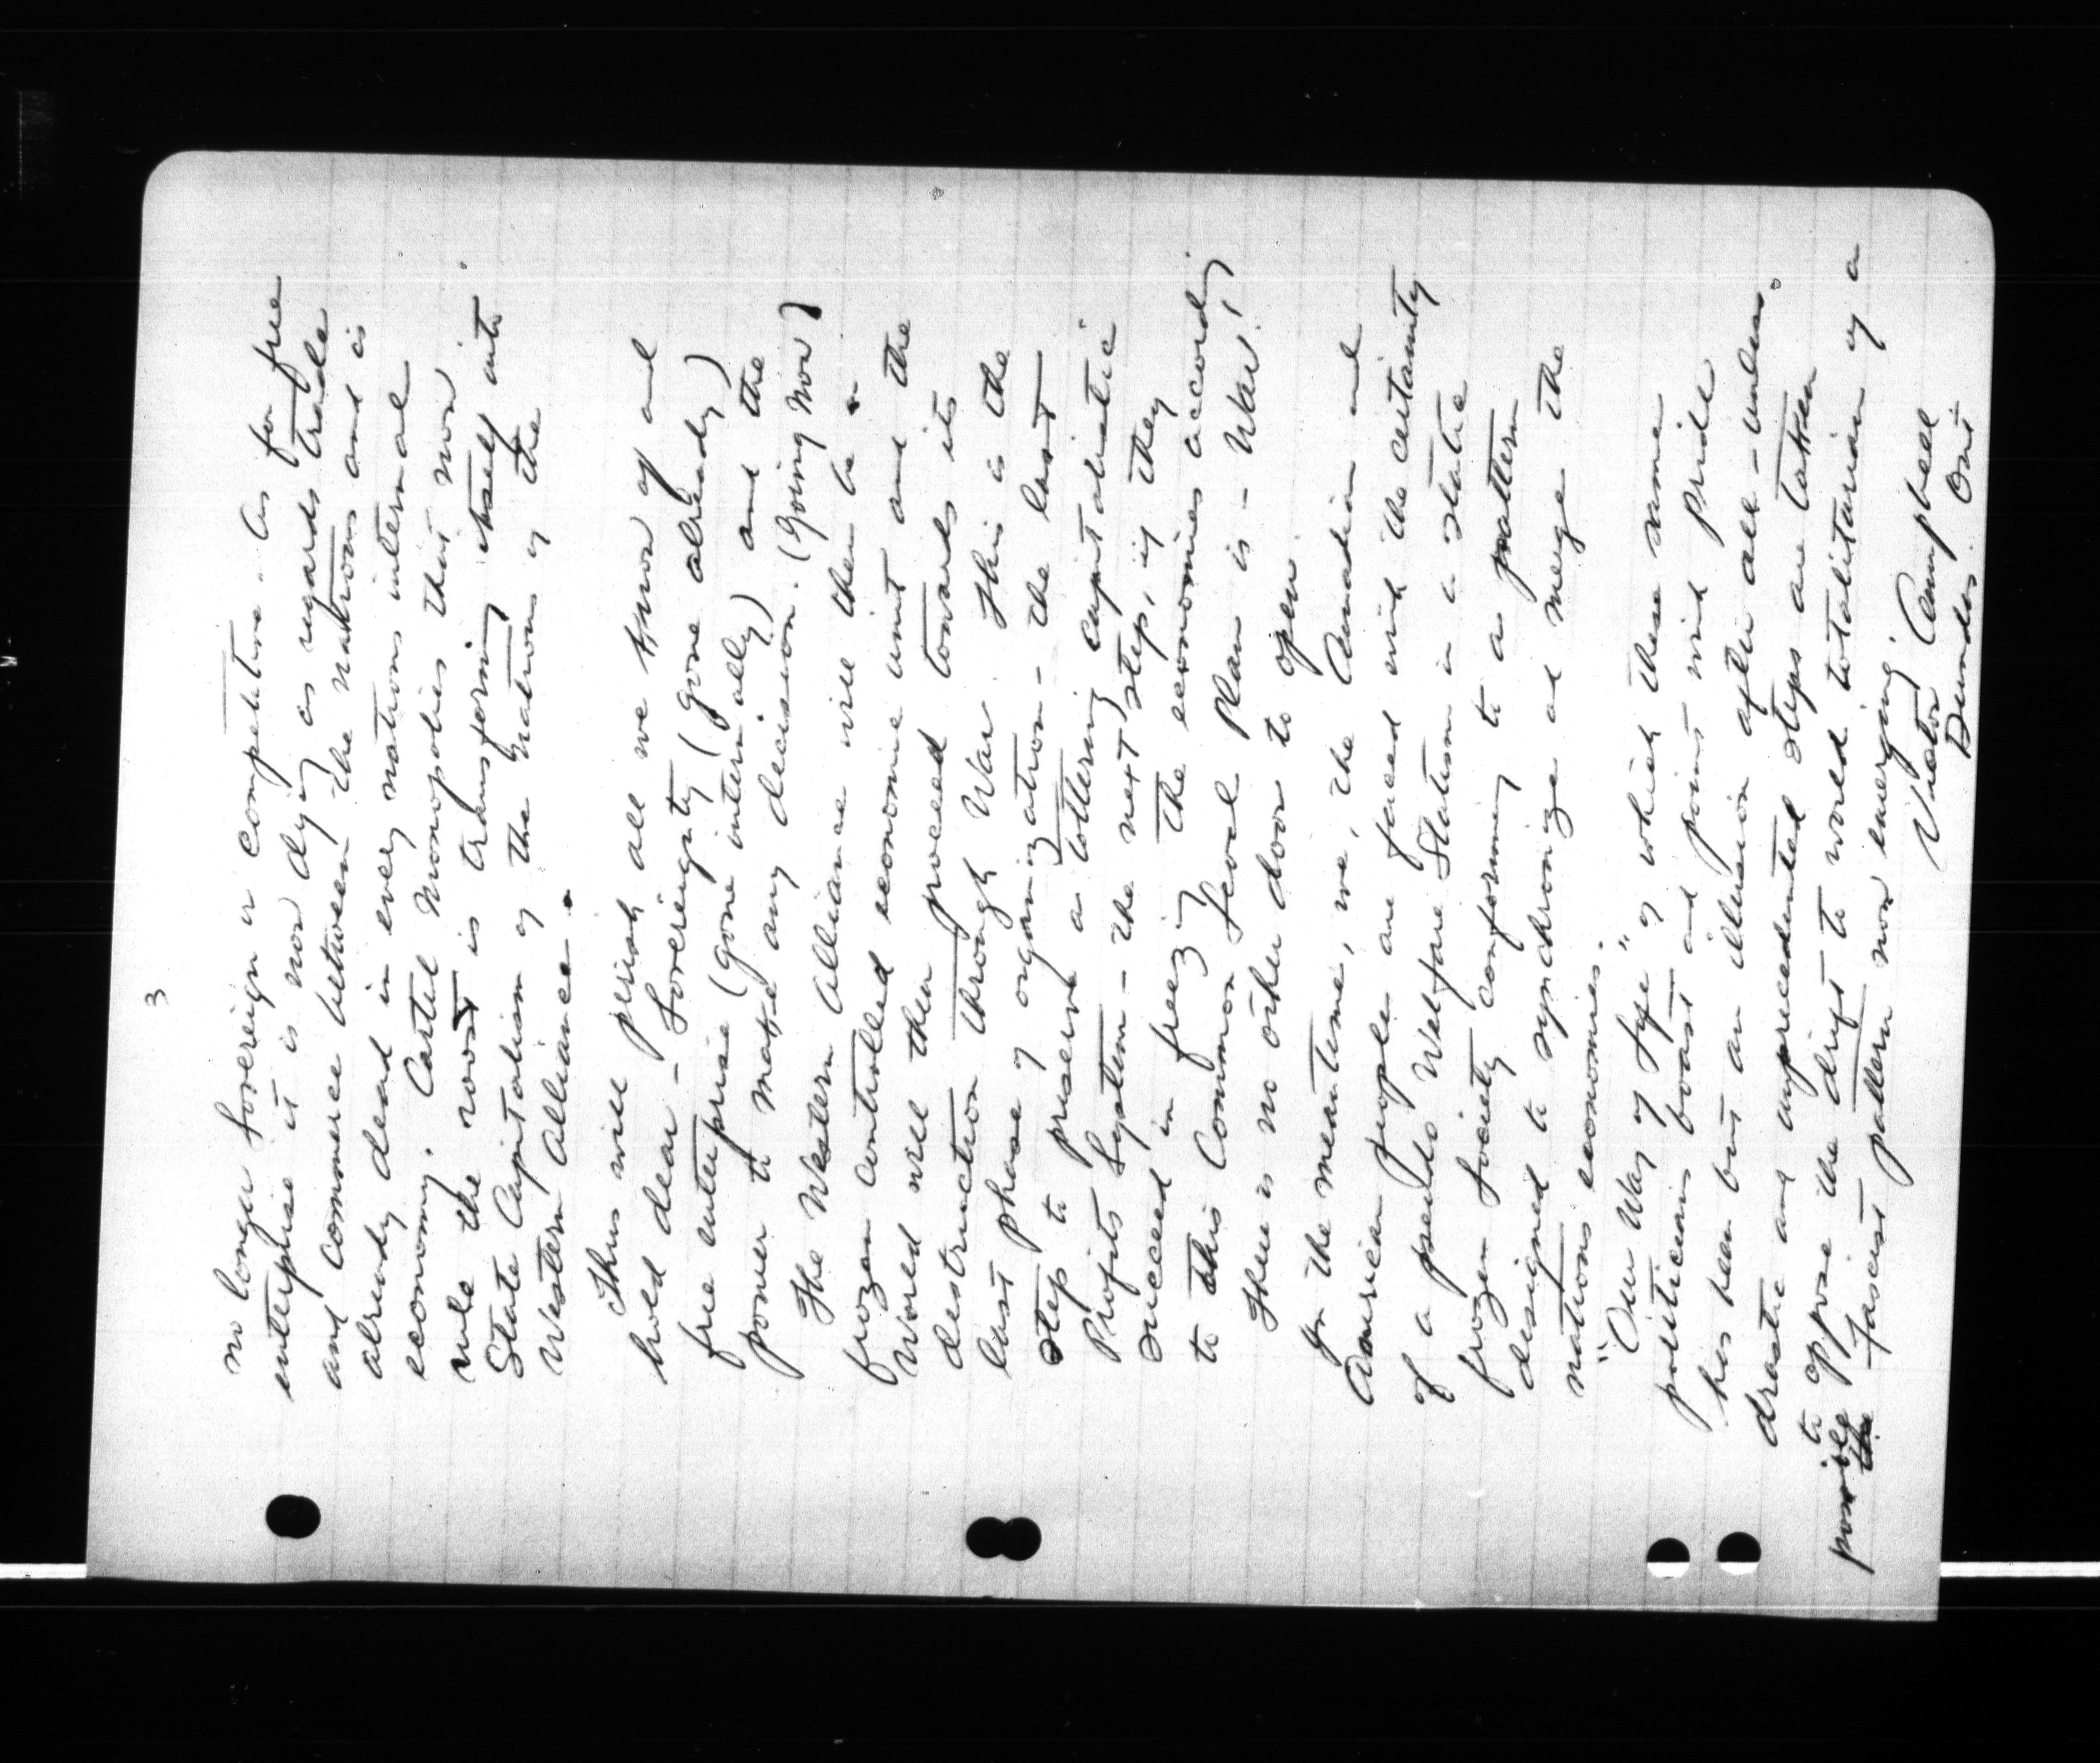 3
no longer Sovereign or competitive. As for free
enterprise it is now dying as regards trade
and commerce between the nations and is
already dead in every nations internal
economy. Cartel Monopolies that now
rule the roost is transforming itself into
State Capitalism of the nations of the
Western Alliance.
Thus will perish all we know of and
hold dear - Sovereignty (gone already)
free enterprise (gone internally) and the
power to make any decision. (Going Now)
The Western Alliance will then be a
frozen controlled economic unit and the
World will then proceed towards its
destruction through War. This is the
last phase of organization - the last
step to preserve a tottering capitalistic
Profits System - the next step, if they
succeed in freezing the economies according
to this Common Level Plan is - War!
There is no other door to open.
In the meantime, we, the Canadian and
American people are faced with the certainty
of a pseudo Welfare Statism in a static
frozen Society conforming to a pattern
designed to synchronize and merge the
nations economies.
"Our Way of Life" of which these same
politicians boast and point with pride
has been but an illusion after all - unless
drastic and unprecedented steps are taken
to oppose the drift to world totalitarian of a
possible Fascist pattern now emerging.
the
Victor Campbell
Dundas. Ont.